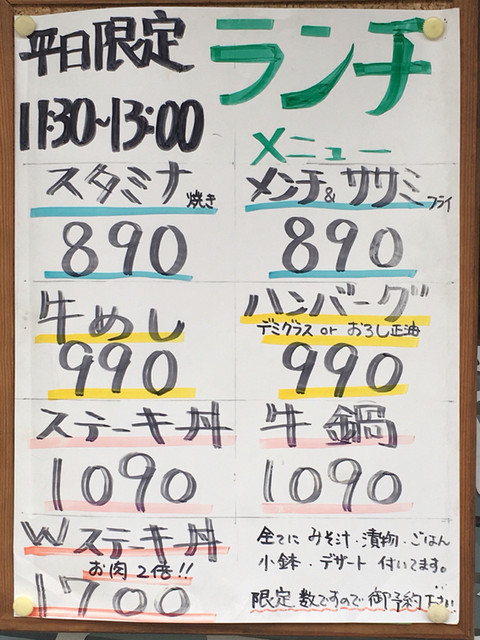 平日限定
11:30~13:00
ランチ
メニュー
スタミナ焼き
890
メンチ&ササミフライ
890
牛めし
990
ハンバーグ
デミグラス or おろし正油
990
ステーキ丼
1090
牛鍋
1090
Wステーキ丼
お肉2倍!!
1700
全てに みそ汁・漬物・ごはん
小鉢・デザート 付いてます。
限定数ですので御予約下さい